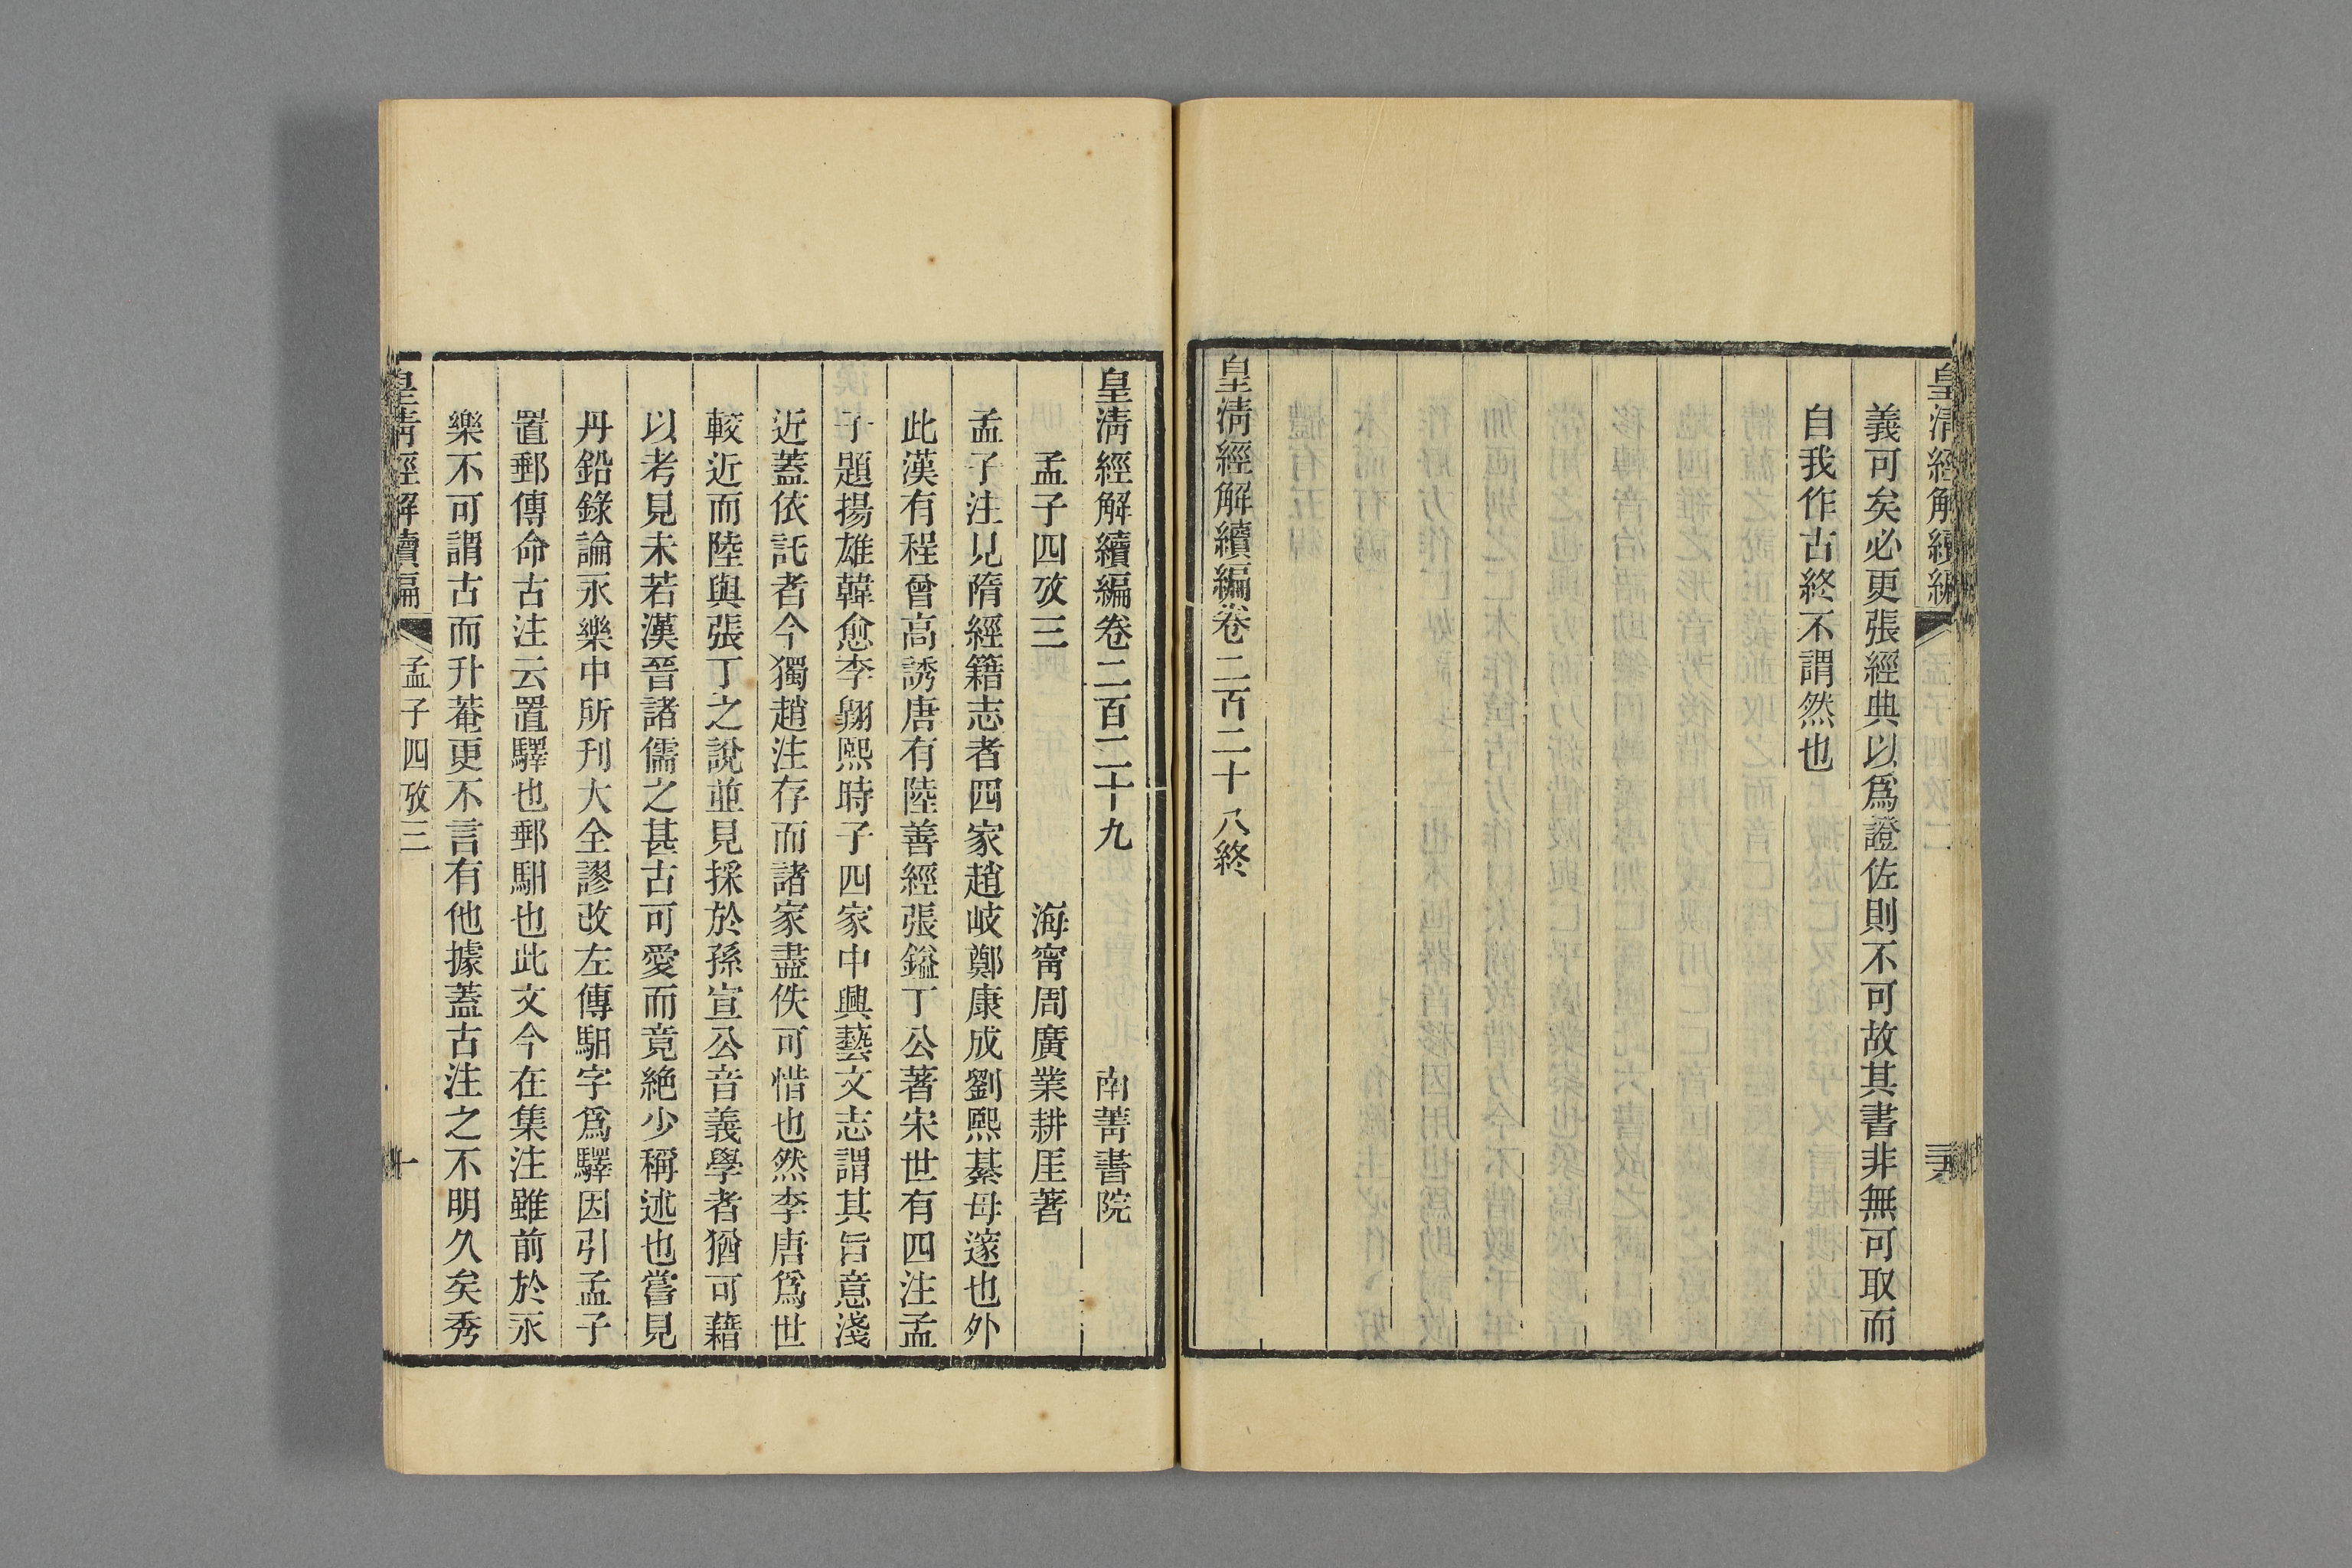 皇清經解續編
義可矣必更張經典以爲證佐則不可故其書非無可取而
自我作古終不謂然也
皇清經解續編卷二百二十八終
皇清經解續編卷二百二十九 南菁書院
孟子四攷三 海甯周廣業耕厓著
孟子注見隋經籍志者四家趙岐鄭康成劉熙綦母邃也外
此漢有程曾高誘唐有陸善經張鎰丁公著宋世有四注孟
子題揚雄韓愈李翺熙時子四家中興藝文志謂其旨意淺
近蓋依託者今獨趙注存而諸家盡佚可惜也然李唐爲世
較近而陸與張丁之說並見採於孫宣公音義學者猶可藉
以考見未若漢晉諸儒之甚古可愛而竟絕少稱述也嘗見
丹鉛錄論永樂中所刊大全謬改左傳馹字爲驛因引孟子
置郵傳命古注云置驛也郵馹也此文今在集注雖前於永
樂不可謂古而升菴更不言有他據蓋古注之不明久矣秀
皇清經解續編 孟子四攷三 一